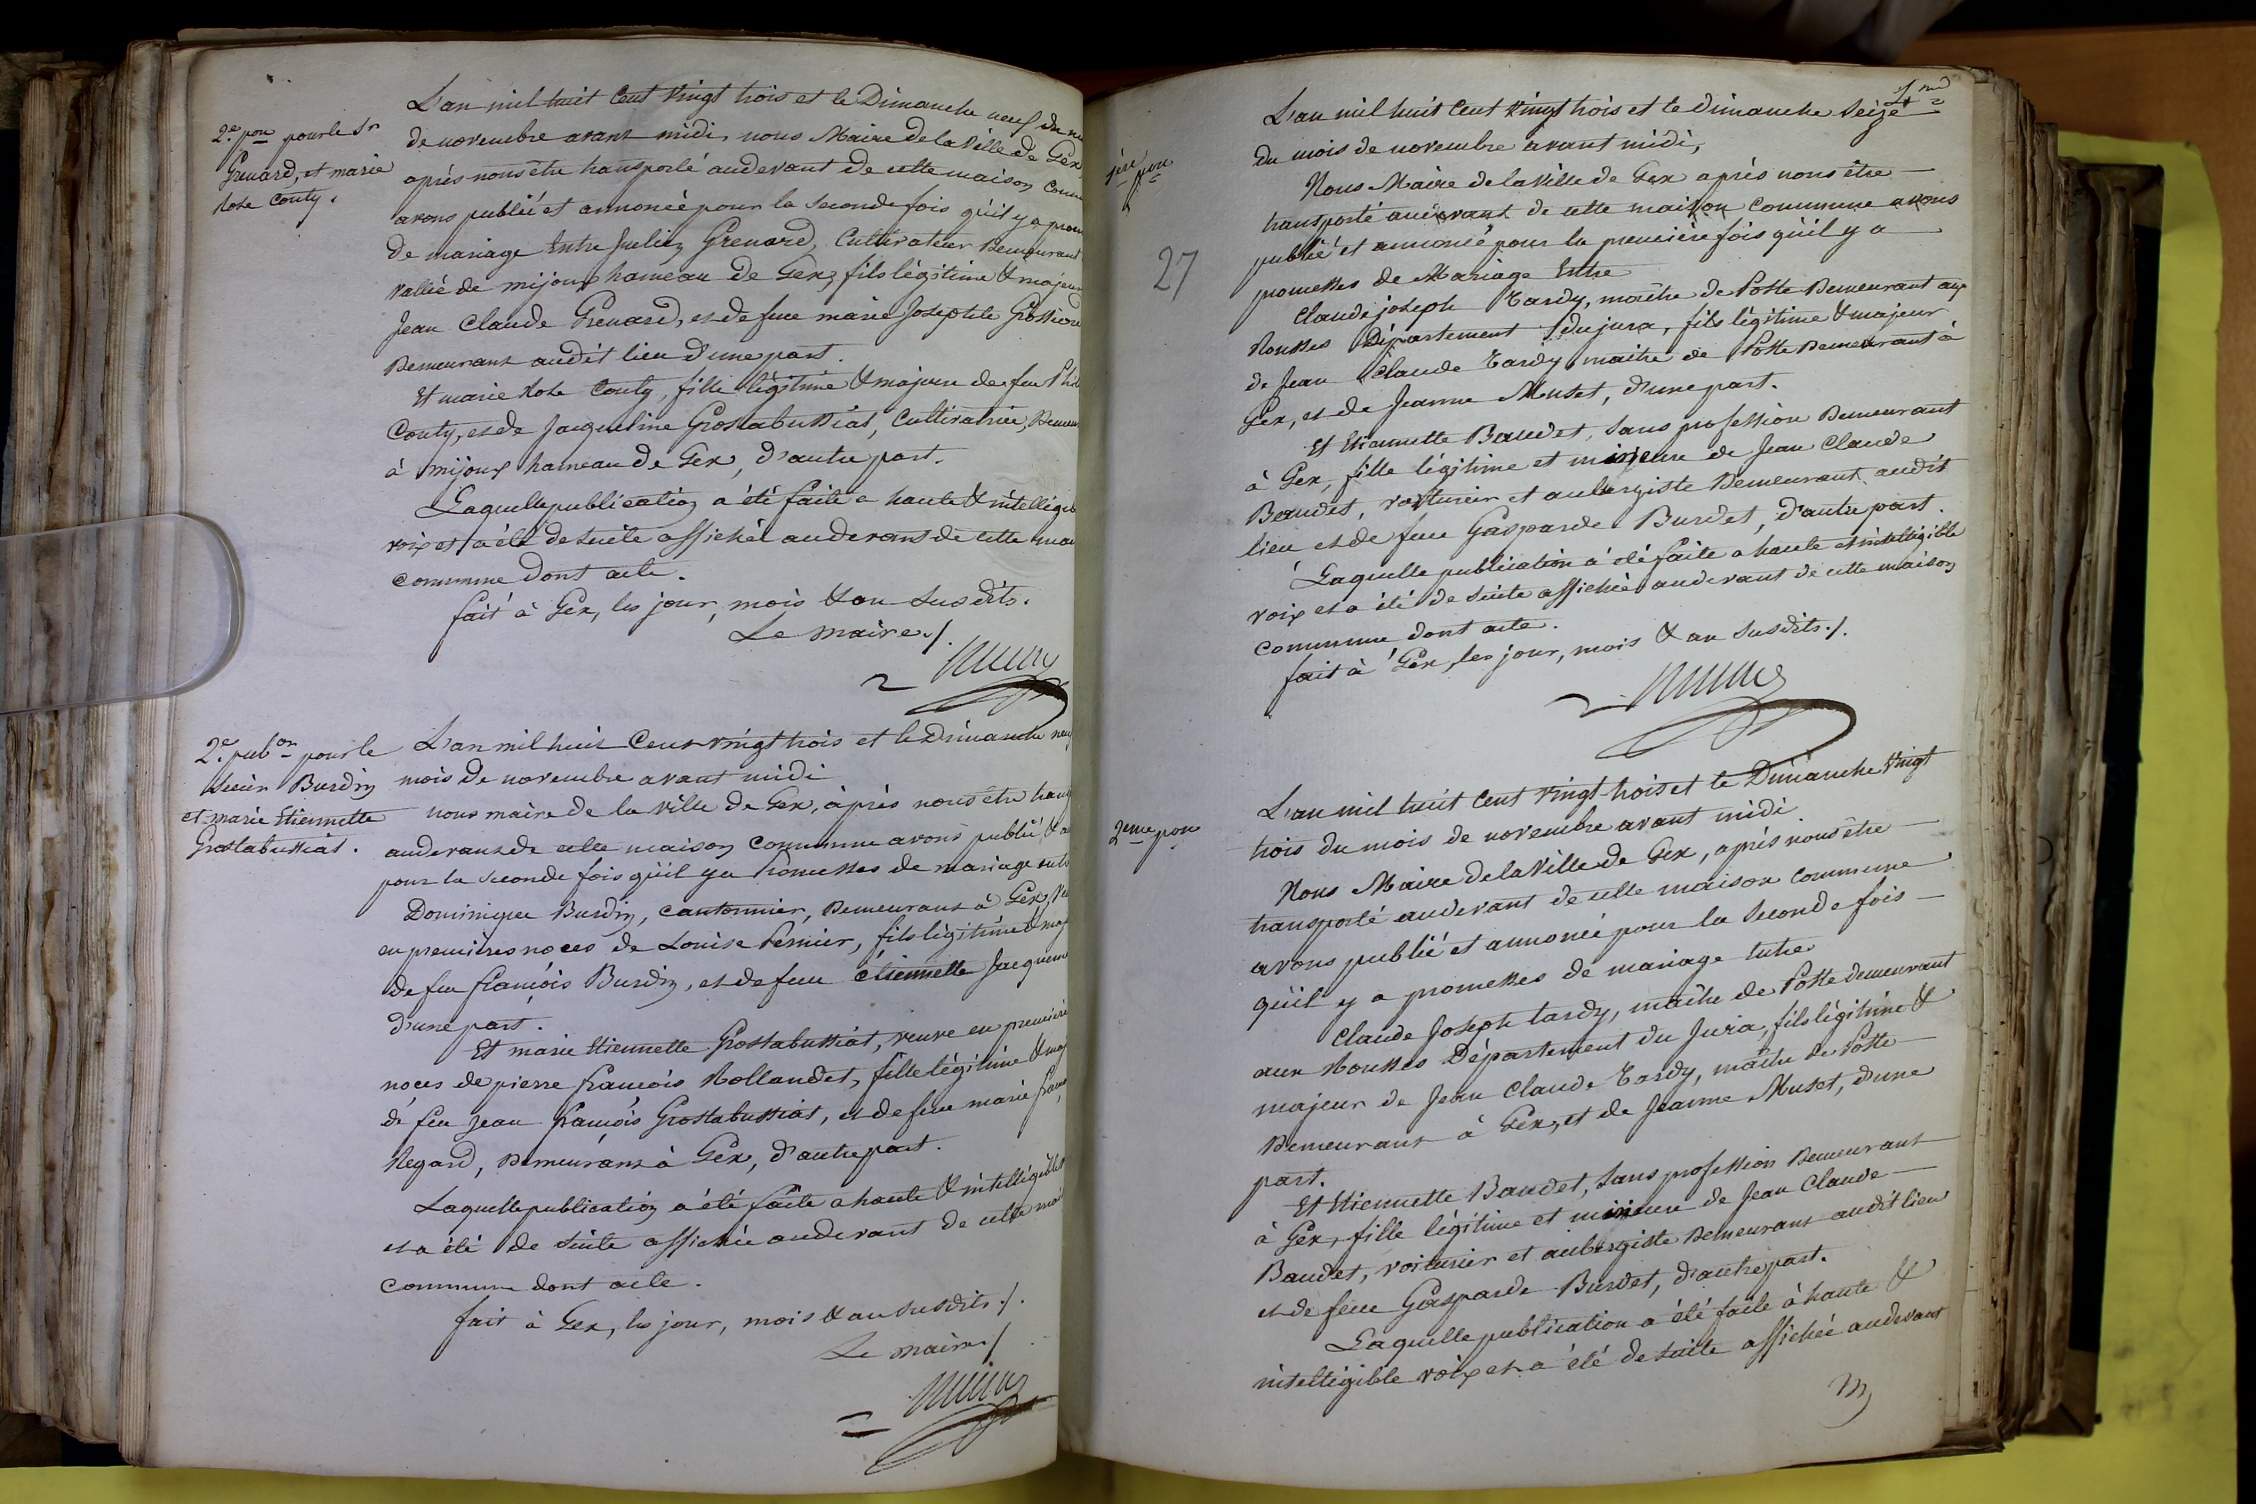 2.e pon pour le Sr
Grenard, et marie
Rose Couty.
L'an mil huit Cent vingt trois et le Dimanche neuf du
de novembre avant midi, nous Maire de la Ville de Gex
après nous être transporté audevant de cette maison
avons publié et annoncé pour la Seconde fois qu'il y a
de mariage Entre Julien Grenard, Cultivateur Demeurant
vallée de mijoux hameau de Gex, fils légitime & majeur
Jean Claude Grenard, et de feue marie Josephte
Demeurant audit lieu d'une part.
Et marie Rose Couty, fille légitime & majeure de feu
Couty, et de Jacqueline Grostabussiat, Cultivatrice,
à mijoux hameau de Gex, d'autre part.
Laquelle publication a été faite a haute & intelligible
voix et a été de suite affichée audevant de cette
commune dont acte.
fait à Gex, les jour, mois & an Susdits.
Le maire ./.
2.e pubon pour le
Sieur Burdin
et marie Etiennette
Grostabussiat.
L'an mil huit Cent vingt trois et le Dimanche neuf
mois de novembre avant midi
nous maire de la ville de Gex, après nous être
audevant de cette maison commune avons publié, &
pour la seconde fois qu'il y a Promesses de mariage
Dominique Burdin, cantonnier, Demeurant à Gex,
en premières noces de Louise Pernier, fils légitime &
de feu françois Burdin, et de feue étiennette
d'une part.
Et marie Etiennette Grostabussiat, veuve en première
noces de pierre françois Rollandet, fille légitime &
de feu Jean françois Grostabussiat, et de feue marie
Regard, Demeurant à Gex, d'autre part.
Laquelle publication a été faite a haute & intelligible
et a été de suite affichée audevant de cette
commune dont acte.
fait à Gex, les jour, mois & an susdits ./.
Le maire ./.
1ère pon
27
L'an mil huit Cent vingt trois et le dimanche Seize
du mois de novembre avant midi,
Nous Maire de la Ville de Gex après nous être
transporté audevant de cette maison commune avons
publié et annoncé pour la première fois qu'il y a
promesses de Mariage Entre
Claude joseph Tardy, maître de Poste Demeurant aux
Rousses Département du jura, fils légitime & majeur
de Jean Claude Tardy maître de Poste Demeurant à
Gex, et de Jeanne Muset, d'une part.
Et Etiennette Baudet, Sans profession Demeurant
à Gex, fille légitime et mineure de Jean Claude
Baudet, voiturier et aubergiste Demeurant audit
lieu et de feue Gasparde Burdet, d'autre part.
Laquelle publication a été faite a haute et intelligible
voix et a été de Suite affichée audevant de cette maison
commune dont acte.
fait à Gex, les jour, mois & an Susdits ./.
2eme pon
L'an mil huit Cent vingt-trois et le Dimanche Vingt
trois du mois de novembre avant midi
Nous Maire de la Ville de Gex, après nous être
transporté audevant de cette maison commune
avons publié et annoncé pour la Seconde fois
qu'il y a promesses de mariage Entre
Claude Joseph tardy, maître de Poste demeurant
aux Rousses Département du Jura, fils légitime &
majeur de Jean Claude Tardy, maître de Poste
Demeurant à Gex, et de Jeanne Muset, d'une
part.
Et Etiennette Baudet, Sans profession Demeurant
à Gex, fille légitime et mineure de Jean Claude
Baudet, voiturier et aubergiste Demeurant audit lieu
et de feue Gasparde Burdet, d'autre part.
Laquelle publication a été faite à haute &
intelligible voix et a été de suite affichée audevant